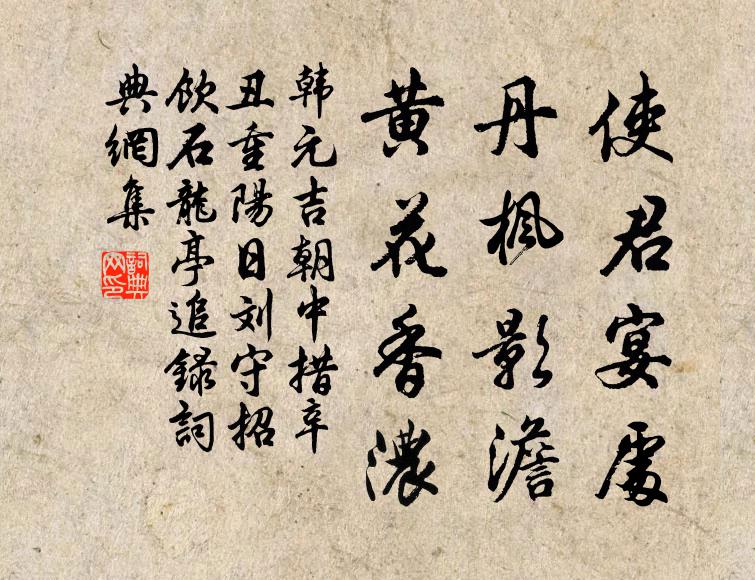 使君宴處
丹楓影澹
黄花香濃
韩元吉朝中措辛
丑重陽日刘守招
飲石龍亭追録詞
典網集
詞典
网印